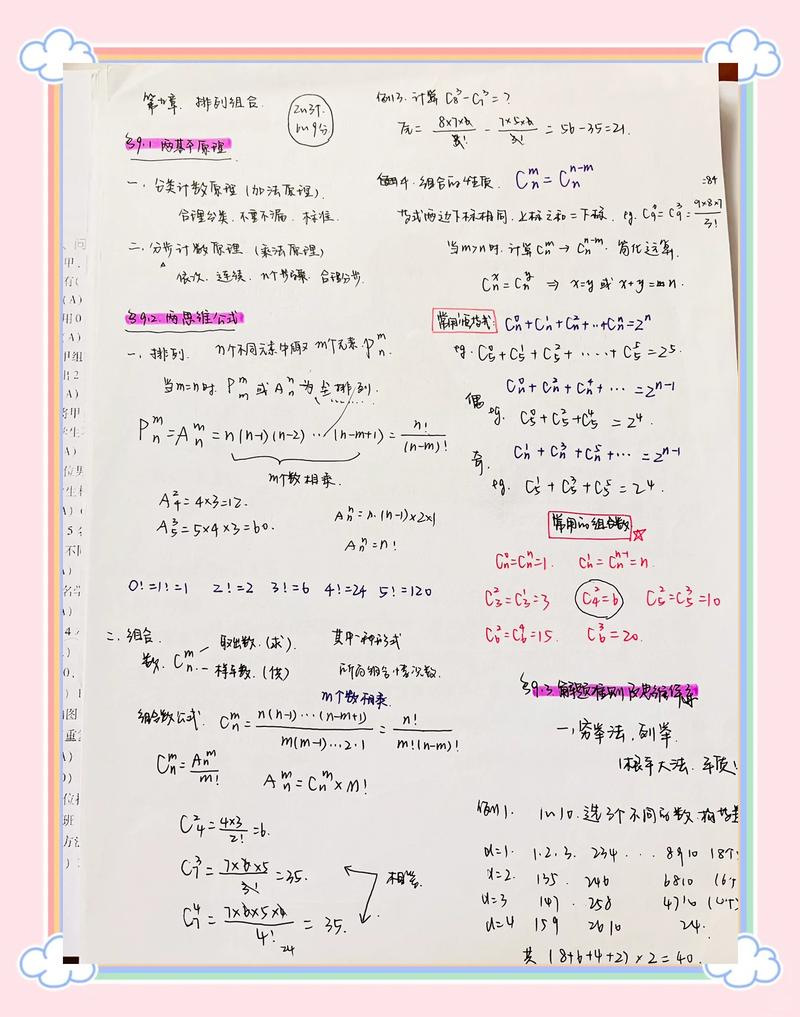 第九章. 排列组合.
2n3个.
1n9分
§9.1 两基本原理.
一. 分类计数原理 (加法原理).
合理分类. 不重不漏. 标准.
二. 分步计数原理 (乘法原理)
依次. 连续. n个步骤. 合理分步.
§9.2. 两思维公式
一. 排列. n个不同元素中取m个元素. P_n^m.
当m=n时. P_m^m 或 A_n^n 为全排列.
P_n^m = A_n^m = n(n-1)(n-2)…(n-m+1) = n!/(n-m)!
m个数相乘.
A_4^2=4×3=12.
A_5^3=5×4×3=60.
A_n^n=n.(n-1)×2×1
A_n^n=n!
0!=1!=1 2!=2 3!=6 4!=24 5!=120
二. 组合.
数. C_n^m
取出数. (求) 其中一种形式
样本数. (供) 所有组合情况数.
m个数相乘
组合数公式. C_n^m = n(n-1)…(n-m+1)/m(m-1)…2·1 = n!/m!(n-m)!
C_n^m = A_n^m/m! A_n^m = C_n^m × m!
C_4^2 = 4×3/2! = 6.
C_7^3 = 7×6×5/3! = 35.
相等.
C_7^4 = 7×6×5×4/4! = 35.
24
例3. 计算 C_8^3 - C_7^3 = ?
原 = 8×7×6/3! - 7×5×6/3! = 56-35=21.
4. 组合的性质. C_n^m = C_n^{n-m}
=84
等式两边下标相同, 上标之和=下标. eg. C_9^6 = C_9^3 = 9×8×7/3!
当m>n时. 计算 C_n^m → C_n^{n-m}. 简化运算.
C_n^x = C_n^y ⇒ x=y 或 x+y=n.
常用恒等式: C_n^0+C_n^1+C_n^2+..+C_n^n=2^n
eg. C_5^0+C_5^1+C_5^2+....+C_5^5=2^5.
C_n^0+C_n^2+C_n^4+…=2^{n-1}
偶
eg. C_5^0+C_5^2+C_5^4=2^4.
奇. C_n^1+C_n^3+C_n^5+…=2^{n-1}
eg. C_5^1+C_5^3+C_5^5=2^4.
常用的组合数
C_n^0=C_n^n=1. C_n^1=C_n^{n-1}=n.
C_3^2=C_3^1=3 C_4^2=6 C_5^2=C_5^3=10
C_6^2=C_6^4=15. C_6^3=20.
§9.3 解题准则及思维体系
一、穷举法. 列举.
例1. 1~10. 选3个不同的数. 构等差
d=1. 1.2.3. 234 ... 8910 (8个
d=2. 135. 246 6810 (6个
d=3 147. 258 4710 (4个
d=4 159 2610 2个.
共 (8+6+4+2)×2=40.